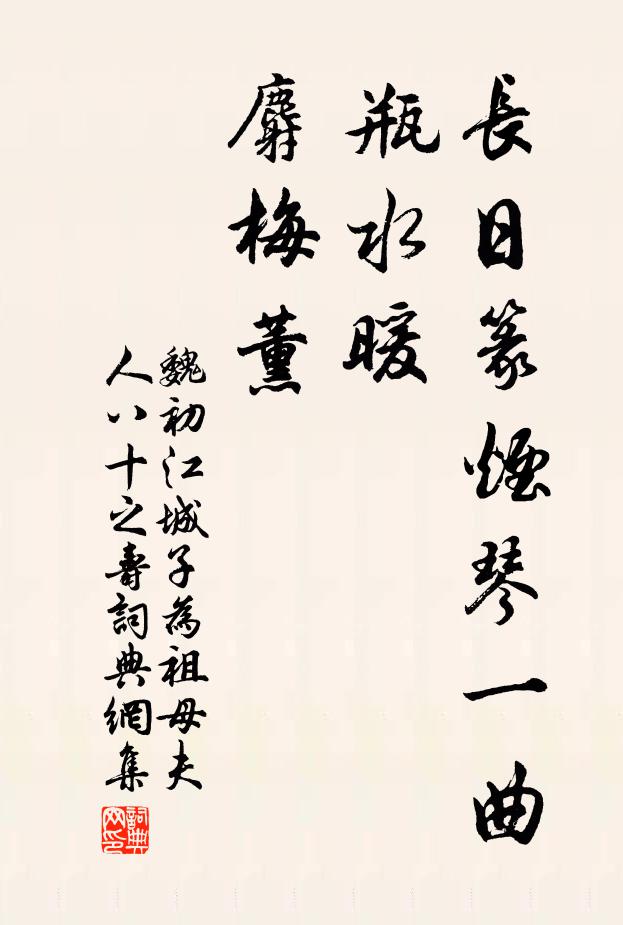 長日篆煙琴一曲
瓶水暖
麝梅薰
魏初江城子為祖母夫
人八十之壽詞典網集
詞典
网印